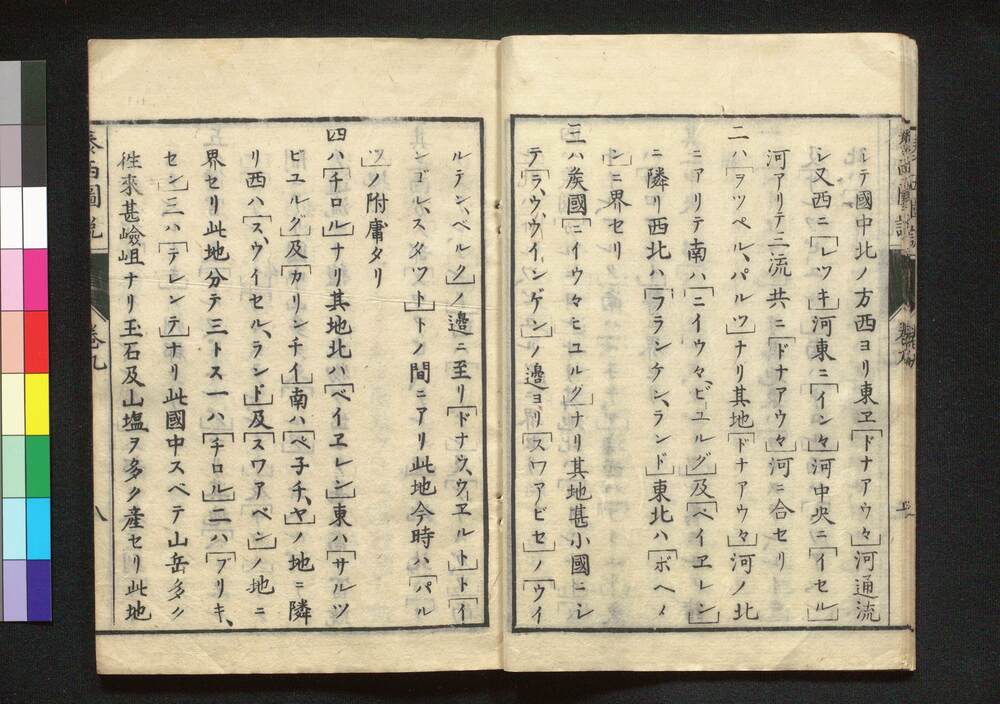 シテ國中北ノ方西ヨリ東ヱ「ドナアウ々」河通流
シ又西ニ「レツキ」河東ニ「イン々」河中央ニ「イセル」
河アリテ三流共ニ「ドナアウ々」河ニ合セリ
二ハ「ヲツペル、パルツ」ナリ其地「ドナアウ々」河ノ北
ニアリテ南ハ「ニイウ々、ビユルグ」及「ベイヱレン」
ニ隣リ西北ハ「フランケン、ランド」東北ハ「ボヘメ
ン」ニ界セリ
三ハ矦國「ニイウ々ヒユルグ」ナリ其地甚小國ニシ
テ「ラ、ウ、ウインゲン」ノ邊ヨリ「スワアビセ」ノ「ウイ
ルテン、ベルク」ノ邊ニ至リ「ドナウ、ウヱルト」ト「イ
ンゴル、スタツト」トノ間ニアリ此地今時ハ「パル
ツ」ノ附庸タリ
四ハ「チロル」ナリ其地北ハ「ベイヱレン」東ハ「サルツ
ビユルグ」及「カリンチイ」南ハ「ベ子チ、ヤ」ノ地ニ隣
リ西ハ「ス、ウイセル、ランド」及「スワアベン」ノ地ニ
界セリ此地分テ三トス一ハ「チロル」二ハ「ブリキ、
セン」三ハ「テレンテ」ナリ此國中スベテ山岳多ク
徃來甚嶮岨ナリ玉石及山塩ヲ多ク産セリ此地
泰西圖説
卷九
八